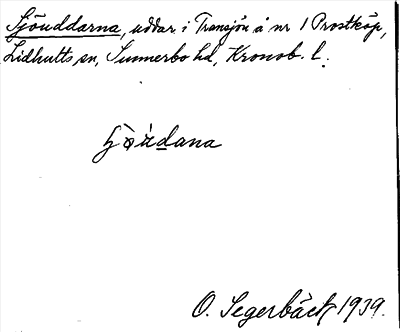 Sjöuddarna, uddar i Transjön å nr 1 Prostköp,
Lidhults sn, Sunnerbo hd, Kronob. l.
O. Segerbäck 1939.